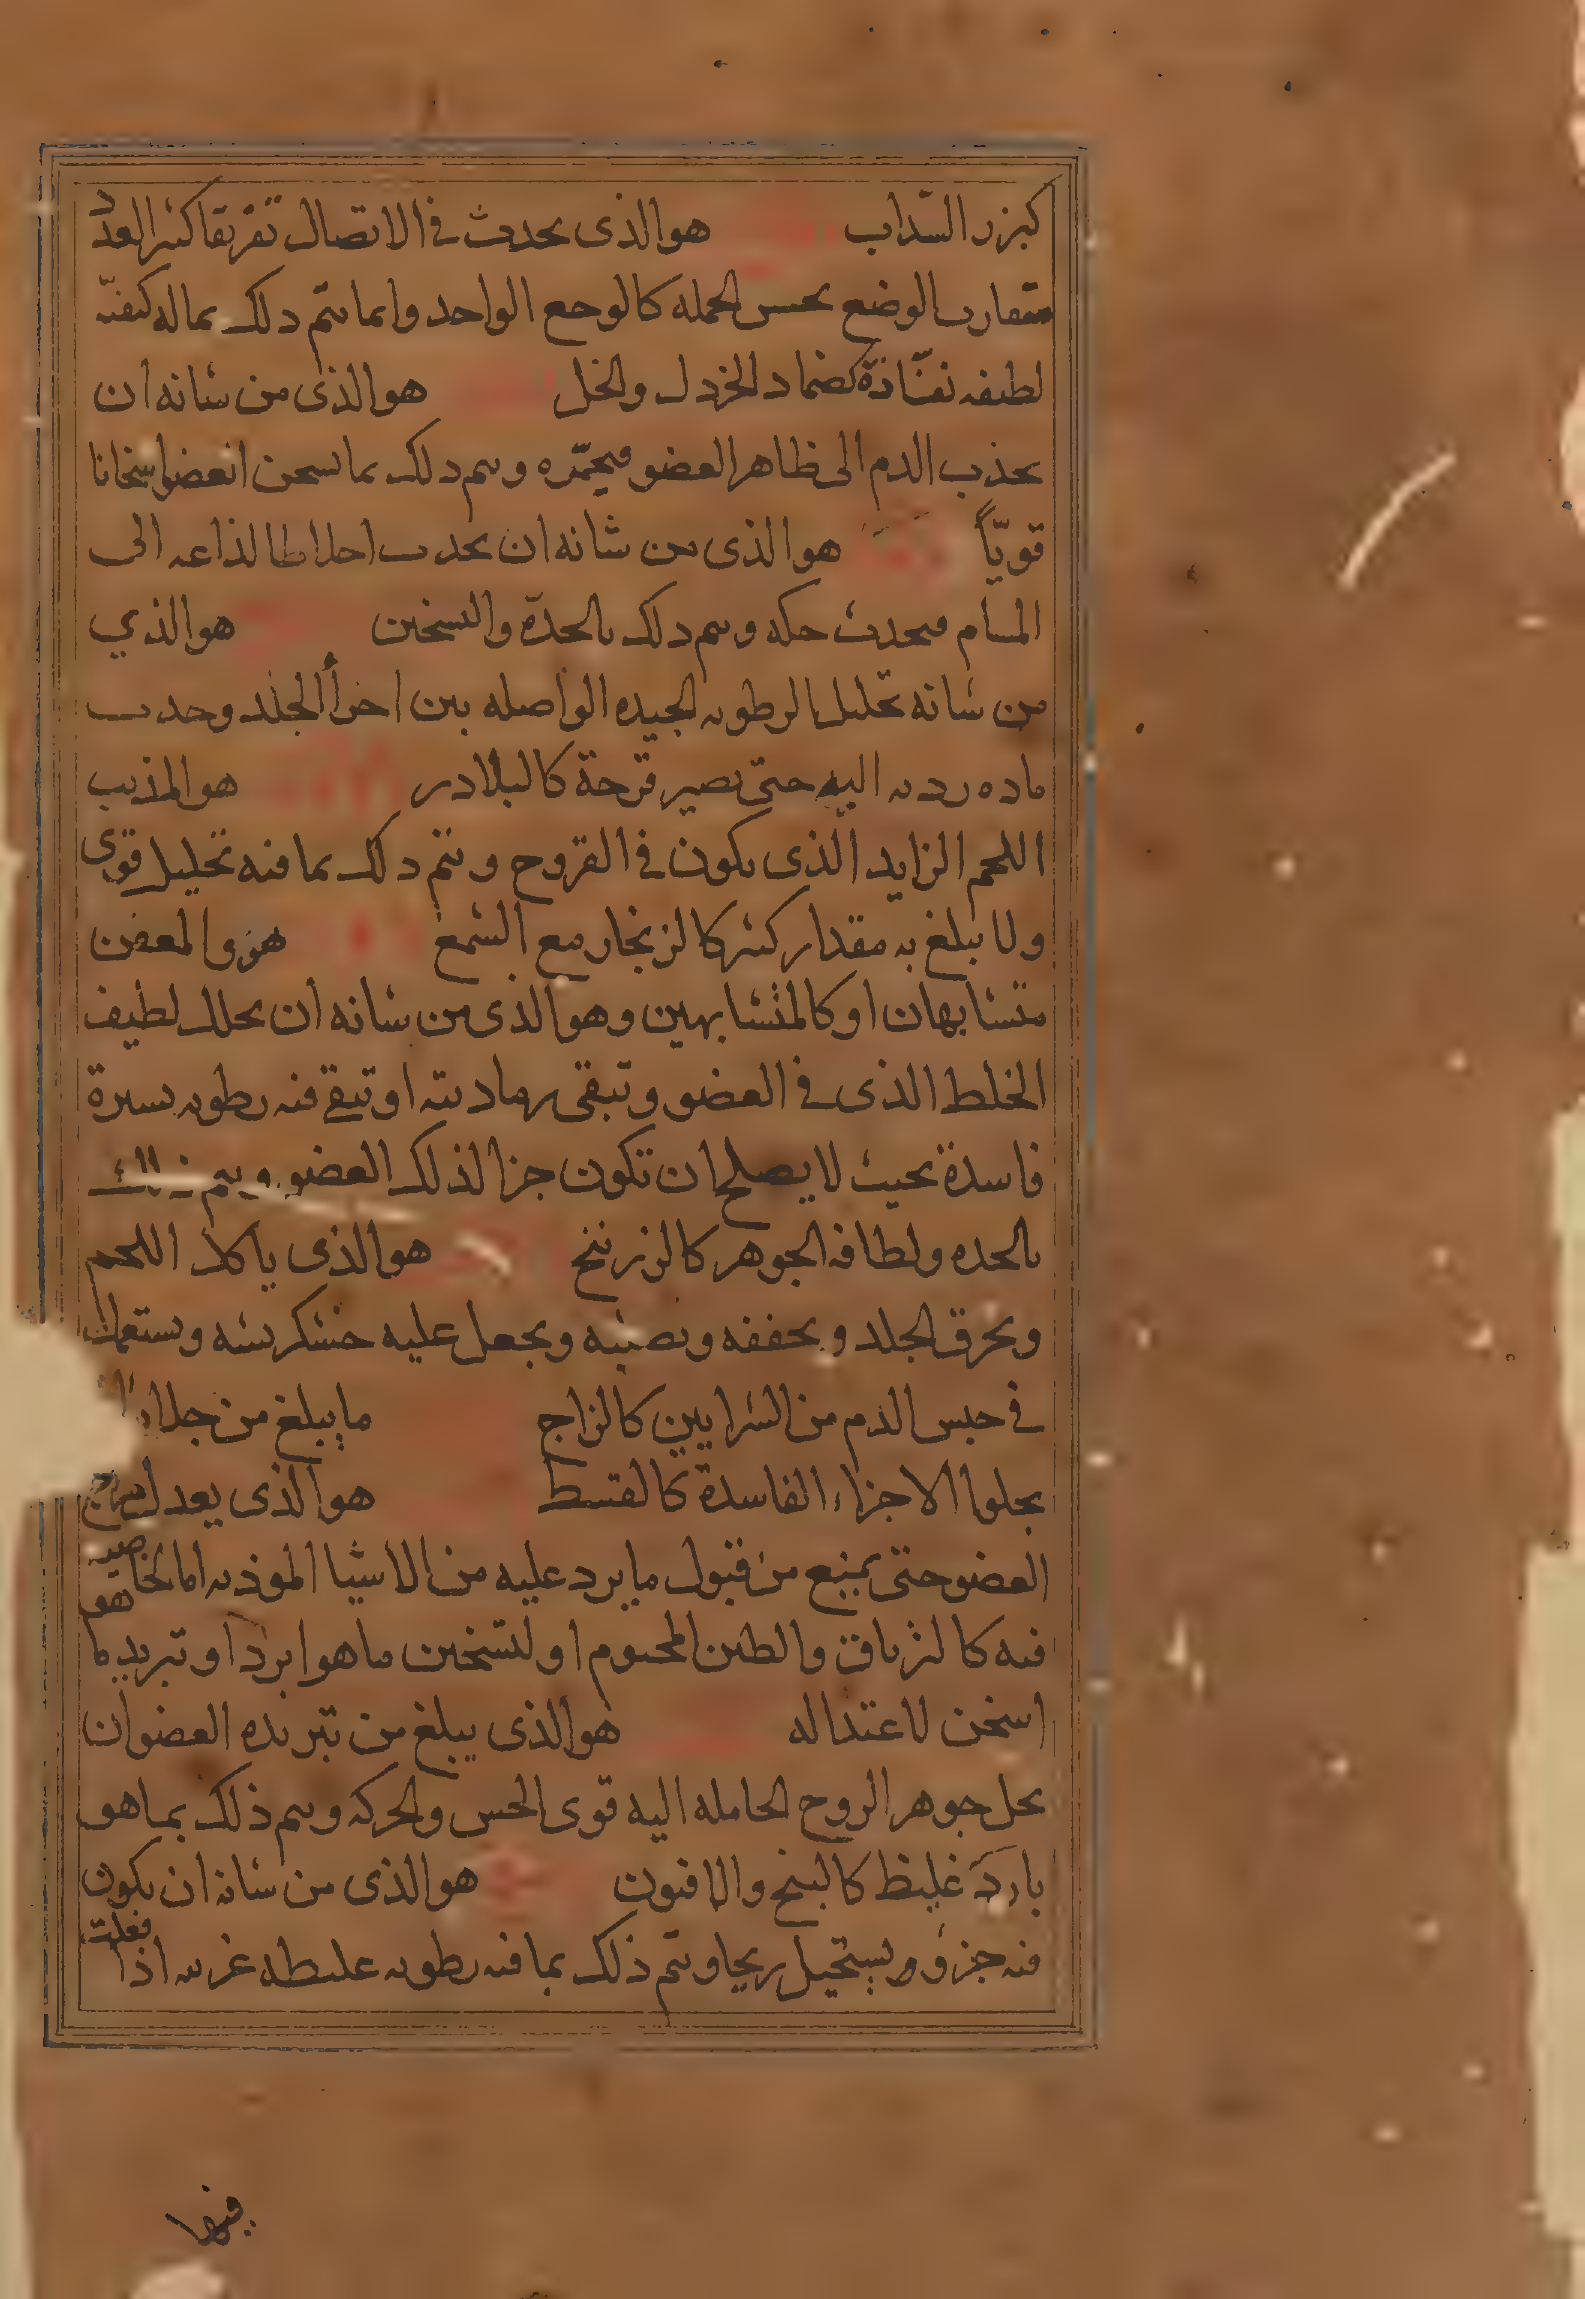 كبزر السّداب هو الذى يحدث فى الاتصال تفرّيقا كثير العدد
متقارب الوضع يحس الجمله كالوجع الواحد وانما يتم ذلك بماله كيفيّة
لطيفه نفّاذة كضماد الخردل والخل هو الذى من شانه ان
يجذب الدم الى ظاهر العضو فيحمّره ويتم ذلك بما يسخن العضو اسخانا
قويّاً هو الذى من شانه ان يجذب اخلاطا لذاعه الى
المسام فيحدث حكه ويتم ذلك بالحدّة والتسخين هو الذي
من شانه تحليل الرطوبه الجيده الواصله بين اجزأ الجلد وجذب
ماده رديه اليه حتى يصير قرحة كالبلادر هو المذيب
اللحم الزايد الّذى يكون فى القروح ويتم ذلك بما فيه تحليل قوى
ولا يبلغ به مقدار كثير كالزنجار مع الشمع هو والمعفن
متشابهان او كالمتشابهين وهو الذى من شانه ان يحلل لطيف
الخلط الذى فى العضو وتبقى رماديته او تبقى فيه رطوبه يسيرة
فاسدة بحيث لا يصلح ان تكون جزا لذلك العضو ويتم ذلك
بالحده ولطافه الجوهر كالزرنيخ هو الذى ياكل اللحم
ويحرق الجلد ويجففه ويصلبه ويجعل عليه خشكريشه ويستعمل
فى حبس الدم من الشرايين كالزاج ما يبلغ من جلائه
يجلوا الاجزاء الفاسدة كالقسط هو الذى يعدل مزاج
العضو حتى يمنع من قبول ما يرد عليه من الاشيا الموذيه اما لخاصيه
فيه كالترياق والطين المختوم او لتسخين ما هو ابرد او تبريد ما هو
اسخن لاعتداله هو الذى يبلغ من تبريده العضو ان
يحل جوهر الروح الحامله اليه قوى الحس والحركه ويتم ذلك بما هو
بارد غليظ كالبنج والافيون هو الذى من شانه ان يكون
فيه جزؤ يستحيل ريحا ويتم ذلك بما فيه رطوبه غليظه غريبه اذا فعلت
فيها